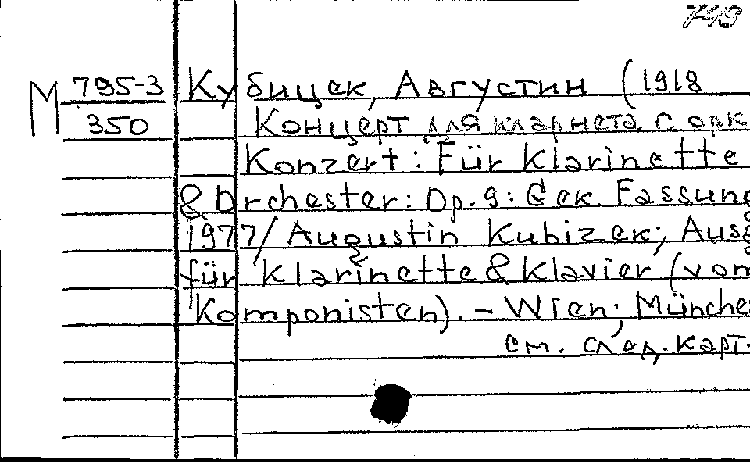 793
М 795-3
350
Кубицек, Августин (1918
Концерт для кларнета с орк
Konzert: Für Klarinette
& Orchester: Op. 9: Gek. Fassung
1977/ Augustin Kubizek; Ausg
für Klarinette & Klavier (vom
Komponisten). – Wien; Münche
см. след. карт.